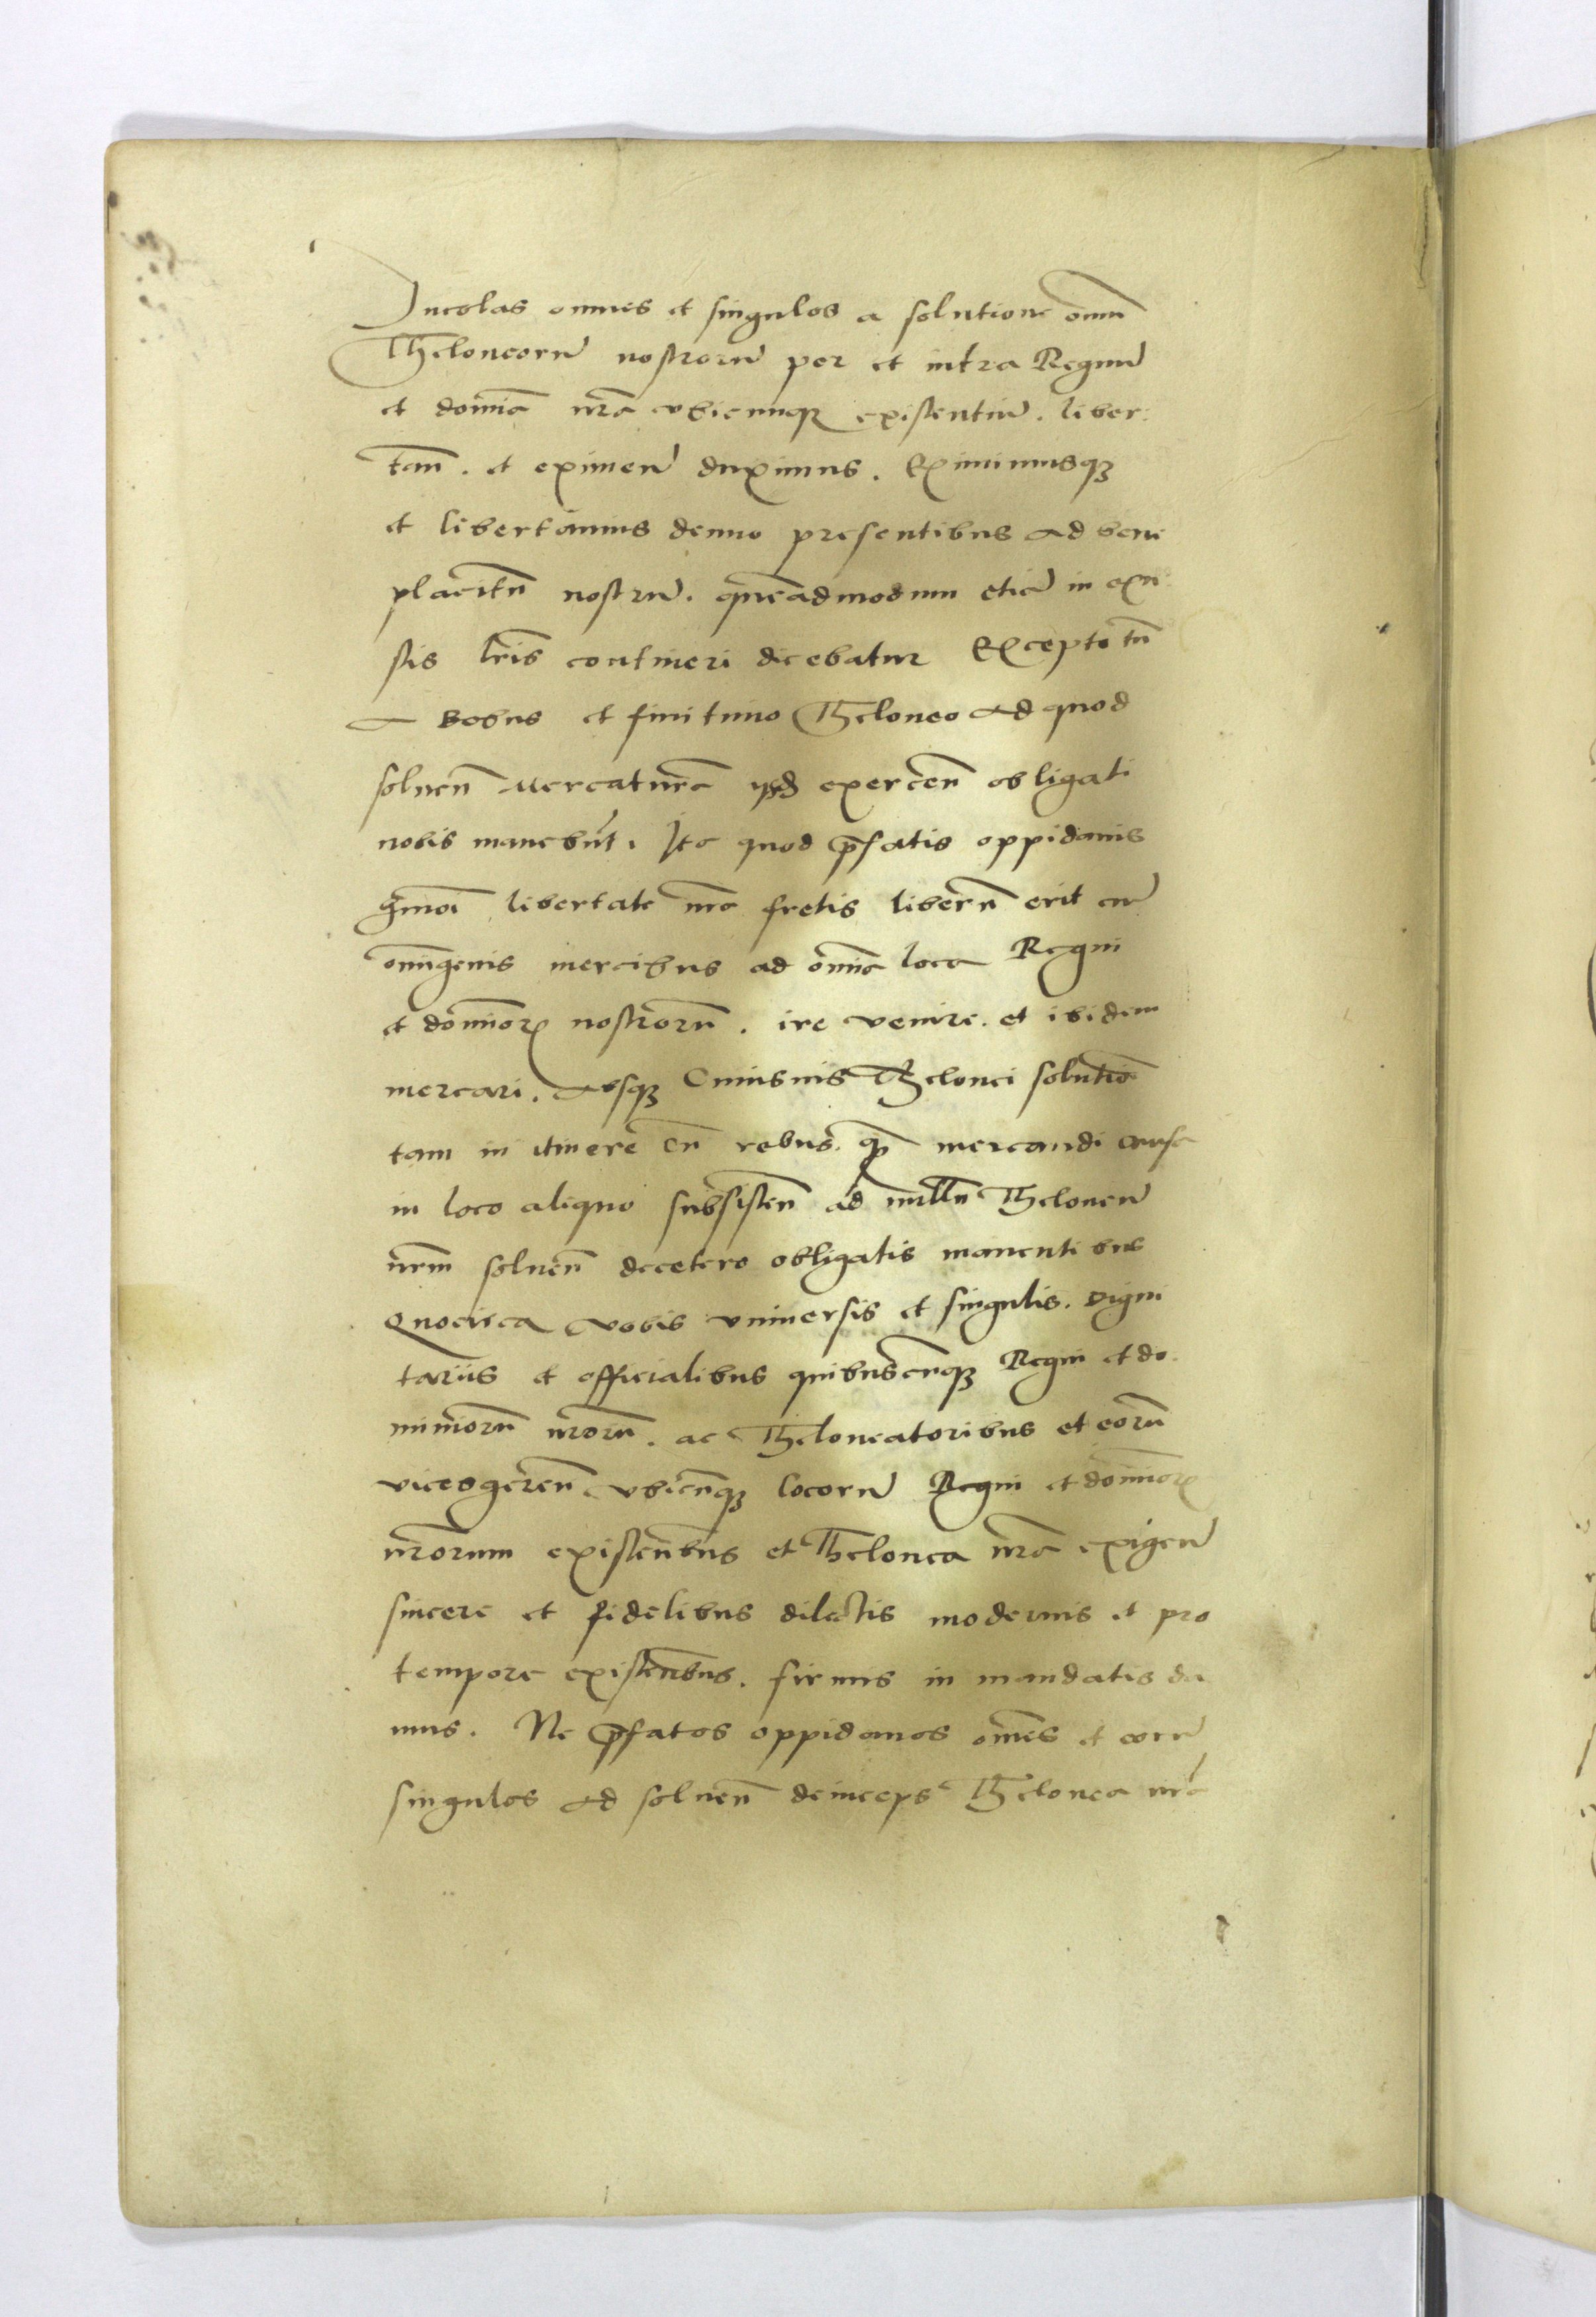 Incolas omnes et singulos a solutione om̅iu̅
Theloneoru̅ nostroru̅ per et intra Regnu̅
et domi̅a nr̅a vbicunq̅ existentiu̅ . liber:
tan̅ . et eximen̅ duximus . Eximimusqꝫ
et libertamus denuo presentibus ad bene
placitu̅ nostru̅ . que̅admodum etia̅ in exu
stis lr̅is contineri dicebatur Excepto tn̅
a bobus et finitimo Theloneo ad quod
soluen̅ Mercatura̅ exercen̅ obligati
nobis manebu̅t . Ita quod p̅fatis oppidanis
h̅mo̅i libertate nr̅a fretis liberu̅ erit cu̅
omnigenis mercibus ad om̅ia loca Regni
et dominioꝝ nostroru̅ . ire venire . et ibidem
mercari . absqꝫ Cuiusuis Thelonei solutio̅e
tam in itinere cu̅ rebus . qꝫ mercandi causa
in loco aliquo subsisten̅ ad nullu̅ Theloneu̅
nr̅m soluen̅ decetero obligatis manentibus
Quocirca vobis vniuersis et singulis . Digni
tariis et officialibus quibuscu̅qꝫ Regni et do
minioru̅ nr̅oru̅ . ac Theloneatoribus et eoru̅
vicesgeren̅ vbicu̅qꝫ locoru̅ Regni et dominioꝝ
nr̅orum existen̅bus et Thelonea nr̅a exigen̅
sincere et fidelibus dilectis modernis et pro
tempore existen̅bus . firmis in mandatis da
mus . Ne p̅fatos oppidanos om̅es et eoru̅
singulos ad soluen̅ deinceps Thelonea nr̅a